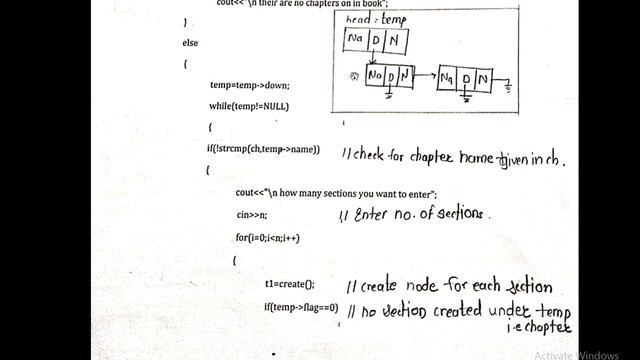 cout<<"\n their are no chapters on in book";
head = temp
}
Na D N
else
{
Na D N
Na D N
temp=temp->down;
while(temp!=NULL)
{
if(!strcmp(ch,temp->name)) //check for chapter name given in ch.
{
cout<<"\n how many sections you want to enter";
cin>>n; // Enter no. of sections.
for(i=0;i<n;i++)
{
t1=create(); // create node for each section
if(temp->flag==0) // no section created under temp
i.e chapter
Activate Windows